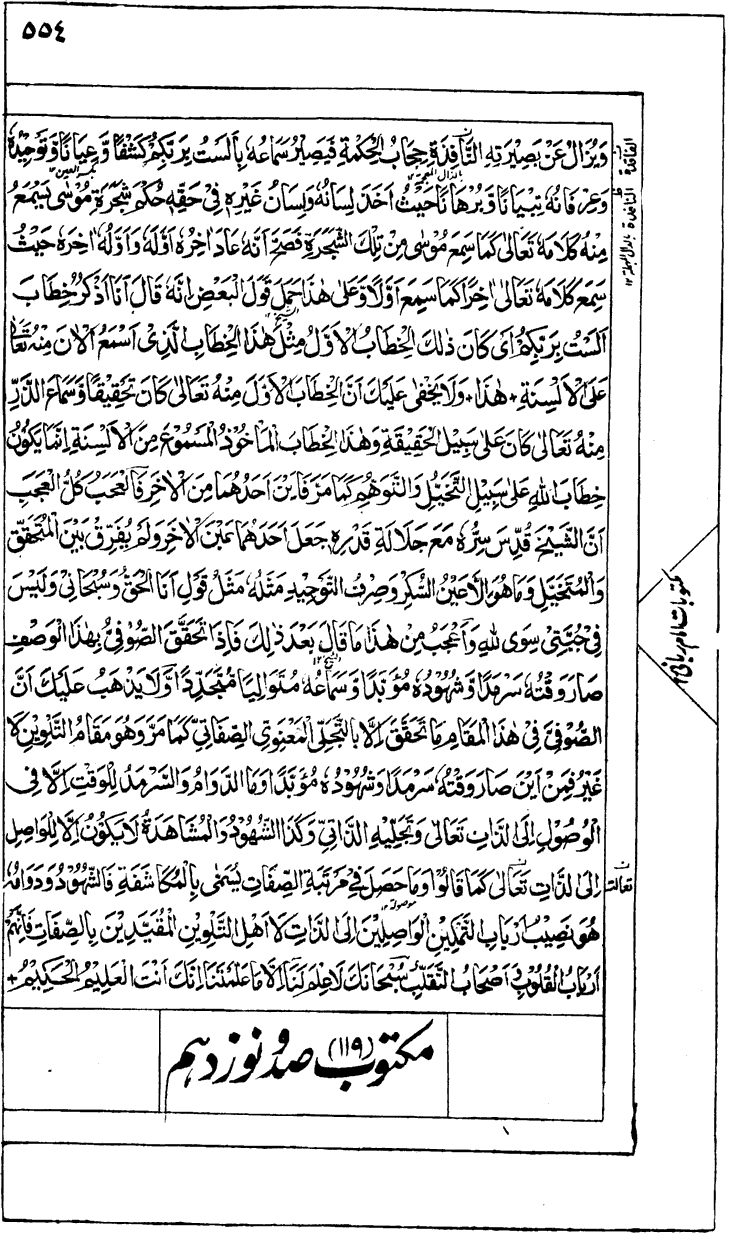 ٥٥٤
وَيُزَالُ عَنْ بَصِيْرَتِهِ النَّافِذَةِ حِجَابُ الْحِكْمَةِ فَيَصِيْرُ سَمَاعُهٗ بِاَلَسْتُ بِرَبِّكُمْ كَشْفًا وَّعِيَانًا وَتَوْحِيْدُهٗ
وَعِرْفَانُهٗ تِبْيَانًا وَّبُرْهَانًا حَيْثُ اَخَذَ لِسَانُهٗ وَلِسَانُ غَيْرِهٖ فِيْ حَقِّهٖ حُكْمَ شَجَرَةِ مُوْسٰى يَسْمَعُ
مِنْهُ كَلَامَهٗ تَعَالٰى كَمَا سَمِعَ مُوْسٰى مِنْ تِلْكَ الشَّجَرَةِ فَصَحَّ اَنَّهٗ عَادَ اٰخِرُهٗ اَوَّلَهٗ وَاَوَّلُهٗ اٰخِرَهٗ حَيْثُ
سَمِعَ كَلَامَهٗ تَعَالٰى اٰخِرًا كَمَا سَمِعَ اَوَّلًا وَعَلٰى هٰذَا حُمِلَ قَوْلُ الْبَعْضِ اِنَّهٗ قَالَ اَنَا اَذْكُرُ خِطَابَ
اَلَسْتُ بِرَبِّكُمْ اَيْ كَانَ ذٰلِكَ الْخِطَابُ الْاَوَّلُ مِثْلَ هٰذَا الْخِطَابِ الَّذِيْ اَسْمَعُ الْاٰنَ مِنْهُ تَعَالٰى
عَلَى الْاَلْسِنَةِ + هٰذَا + وَلَا يَخْفٰى عَلَيْكَ اَنَّ الْخِطَابَ الْاَوَّلَ مِنْهُ تَعَالٰى كَانَ تَحْقِيْقًا وَّسَمَاعَ الذَّرِّ
مِنْهُ تَعَالٰى كَانَ عَلٰى سَبِيْلِ الْحَقِيْقَةِ وَهٰذَا الْخِطَابَ الْمَاْخُوْذَ الْمَسْمُوْعَ مِنَ الْاَلْسِنَةِ اِنَّمَا يَكُوْنُ
خِطَابَ اللّٰهِ عَلٰى سَبِيْلِ التَّخَيُّلِ وَالتَّوَهُّمِ كَمَا مَرَّ فَاَيْنَ اَحَدُهُمَا مِنَ الْاٰخَرِ فَالْعَجَبُ كُلُّ الْعَجَبِ
اَنَّ الشَّيْخَ قُدِّسَ سِرُّهٗ مَعَ جَلَالَةِ قَدْرِهٖ جَعَلَ اَحَدَهُمَا عَيْنَ الْاٰخَرِ وَلَمْ يُفَرِّقْ بَيْنَ الْمُتَحَقَّقِ
وَالْمُتَخَيَّلِ وَمَا هُوَ اِلَّا عَيْنُ السُّكْرِ وَصِرْفُ التَّوْحِيْدِ مَثَلُهٗ مَثَلُ قَوْلِ اَنَا الْحَقُّ وَسُبْحَانِيْ وَلَيْسَ
فِيْ جُبَّتِيْ سِوَى اللّٰهِ وَاَعْجَبُ مِنْ هٰذَا مَا قَالَ بَعْدَ ذٰلِكَ فَاِذَا تَحَقَّقَ الصُّوْفِيُّ بِهٰذَا الْوَصْفِ
صَارَ وَقْتُهٗ سَرْمَدًا وَّشُهُوْدُهٗ مُؤَبَّدًا وَّسَمَاعُهٗ مُتَوَالِيًا مُتَجَدِّدًا وَلَا يَذْهَبُ عَلَيْكَ اَنَّ
الصُّوْفِيَّ فِيْ هٰذَا الْمَقَامِ مَا تَحَقَّقَ اِلَّا بِالتَّجَلِّي الْمَعْنَوِيِّ الصِّفَاتِيِّ كَمَا مَرَّ وَهُوَ مَقَامُ التَّلْوِيْنِ لَا
غَيْرُ فَمِنْ اَيْنَ صَارَ وَقْتُهٗ سَرْمَدًا وَشُهُوْدُهٗ مُؤَبَّدًا وَمَا الدَّوَامُ وَالسَّرْمَدُ لِلْوَقْتِ اِلَّا فِي
الْوُصُوْلِ اِلَى الذَّاتِ تَعَالٰى وَتَجَلِّيْهِ الذَّاتِيِّ وَكَذَا الشُّهُوْدُ وَالْمُشَاهَدَةُ لَا يَكُوْنُ اِلَّا لِلْوَاصِلِ
اِلَى الذَّاتِ تَعَالٰى كَمَا قَالُوْا وَمَا حَصَلَ فِيْ مَرْتَبَةِ الصِّفَاتِ يُسَمّٰى بِالْمُكَاشَفَةِ فَالشُّهُوْدُ وَدَوَامُهٗ
هُوَ نَصِيْبُ اَرْبَابِ التَّمْكِيْنِ الْوَاصِلِيْنَ اِلَى الذَّاتِ لَا اَهْلِ التَّلْوِيْنِ الْمُقَيَّدِيْنَ بِالصِّفَاتِ فَاِنَّهُمْ
اَرْبَابُ الْقُلُوْبِ وَاَصْحَابُ التَّقَلُّبِ سُبْحَانَكَ لَا عِلْمَ لَنَا اِلَّا مَا عَلَّمْتَنَا اِنَّكَ اَنْتَ الْعَلِيْمُ الْحَكِيْمُ +
مکتوب (۱۱۹) صد و نوزدہم
مکتوبات امام ربانی
تعالت